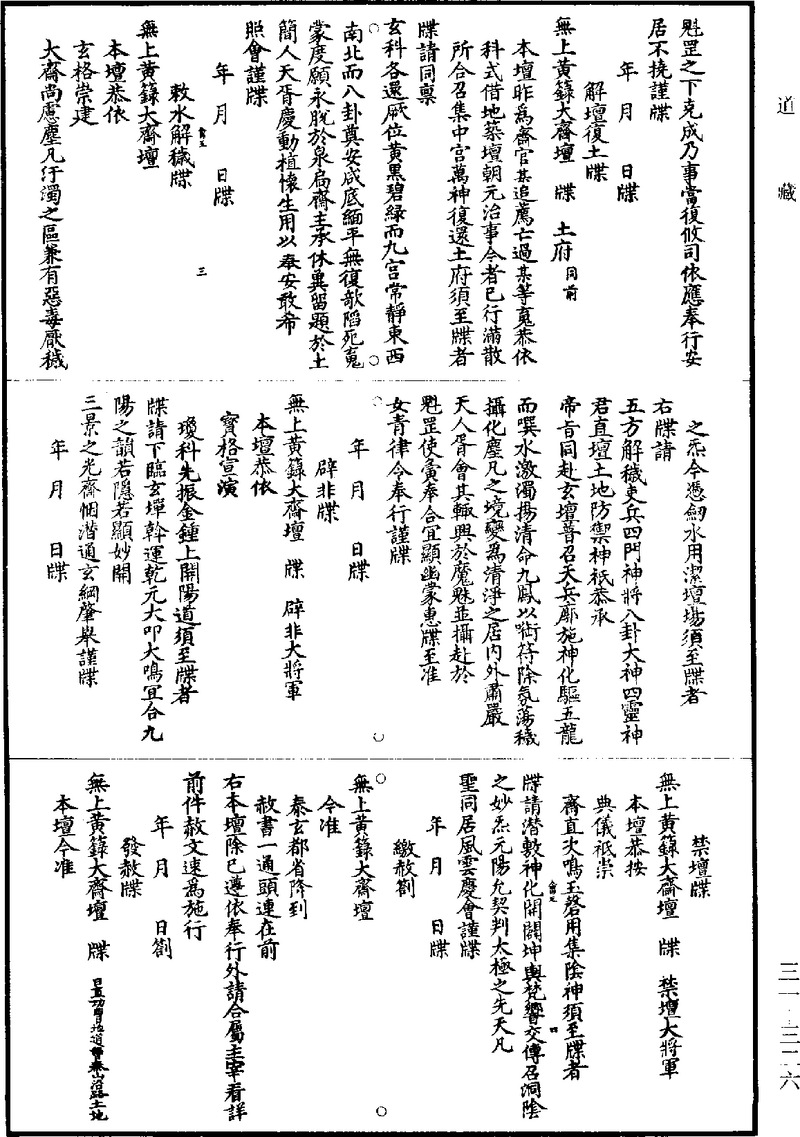 道藏
魁罡之下克成乃事當復攸司依應奉行安
居不撓謹牒
年 月 日牒
解壇復土牒
無上黃籙大齋壇 牒 土府同前
本壇昨爲齋官某追薦亡過某等魂恭依
科式借地築壇朝元治事今者已行滿散
所合召集中宮萬神復還土府須至牒者
牒請同稟
玄科各還厥位黃黑碧綠而九宮常靜東西
南北而八卦奠安咸底緬平無復欹陷死魂
蒙度願永脫於泉扃齋主承休冀留題於土
簡人天胥慶動植懷生用以奉安敢希
照會謹牒
年 月 日牒
敕水解穢牒
三
無上黃籙大齋壇
本壇恭依
玄格崇建
大齋尚慮塵凡汙濁之區兼有惡毒厭穢
之炁今憑劒水用潔壇場須至牒者
右牒請
五方解穢吏兵四門神將八卦大神四靈神
君直壇土地防禦神祇恭承
帝旨同赴玄壇普召天兵廓施神化驅五龍
而噀水激濁揚清命九鳳以啣符除氛蕩穢
攝化塵凡之境變爲清淨之居內外肅嚴
天人胥會其輒興於魔魅並攝赴於
魁罡使貟奉合宜顯幽蒙惠牒至准
女青律令奉行謹牒
年 月 日牒
辟非牒
無上黃籙大齋壇 牒 辟非大將軍
本壇恭依
寶格宣演
瓊科先振金鍾上開陽道須至牒者
牒請下臨玄墠斡運乾元大叩大鳴宜合九
陽之韻若隱若顯妙開
三景之光齋悃潛通玄綱肇舉謹牒
年 月 日牒
禁壇牒
無上黃籙大齋壇 牒 禁壇大將軍
本壇恭按
典儀祇崇
齋直次鳴玉磬用集陰神須至牒者
四
牒請潛敷神化開闢坤輿梵響交傳召洞陰
之妙炁元陽允契判太極之先天凡
聖同居風雲慶會謹牒
年 月 日牒
繳赦劄
無上黃籙大齋壇
今准
泰玄都省降到
赦書一通頭連在前
右本壇除已遵依奉行外請合屬主宰看詳
前件赦文速爲施行
年 月 日劄
發赦牒
無上黃籙大齋壇 牒
本壇今准
三一-三二六